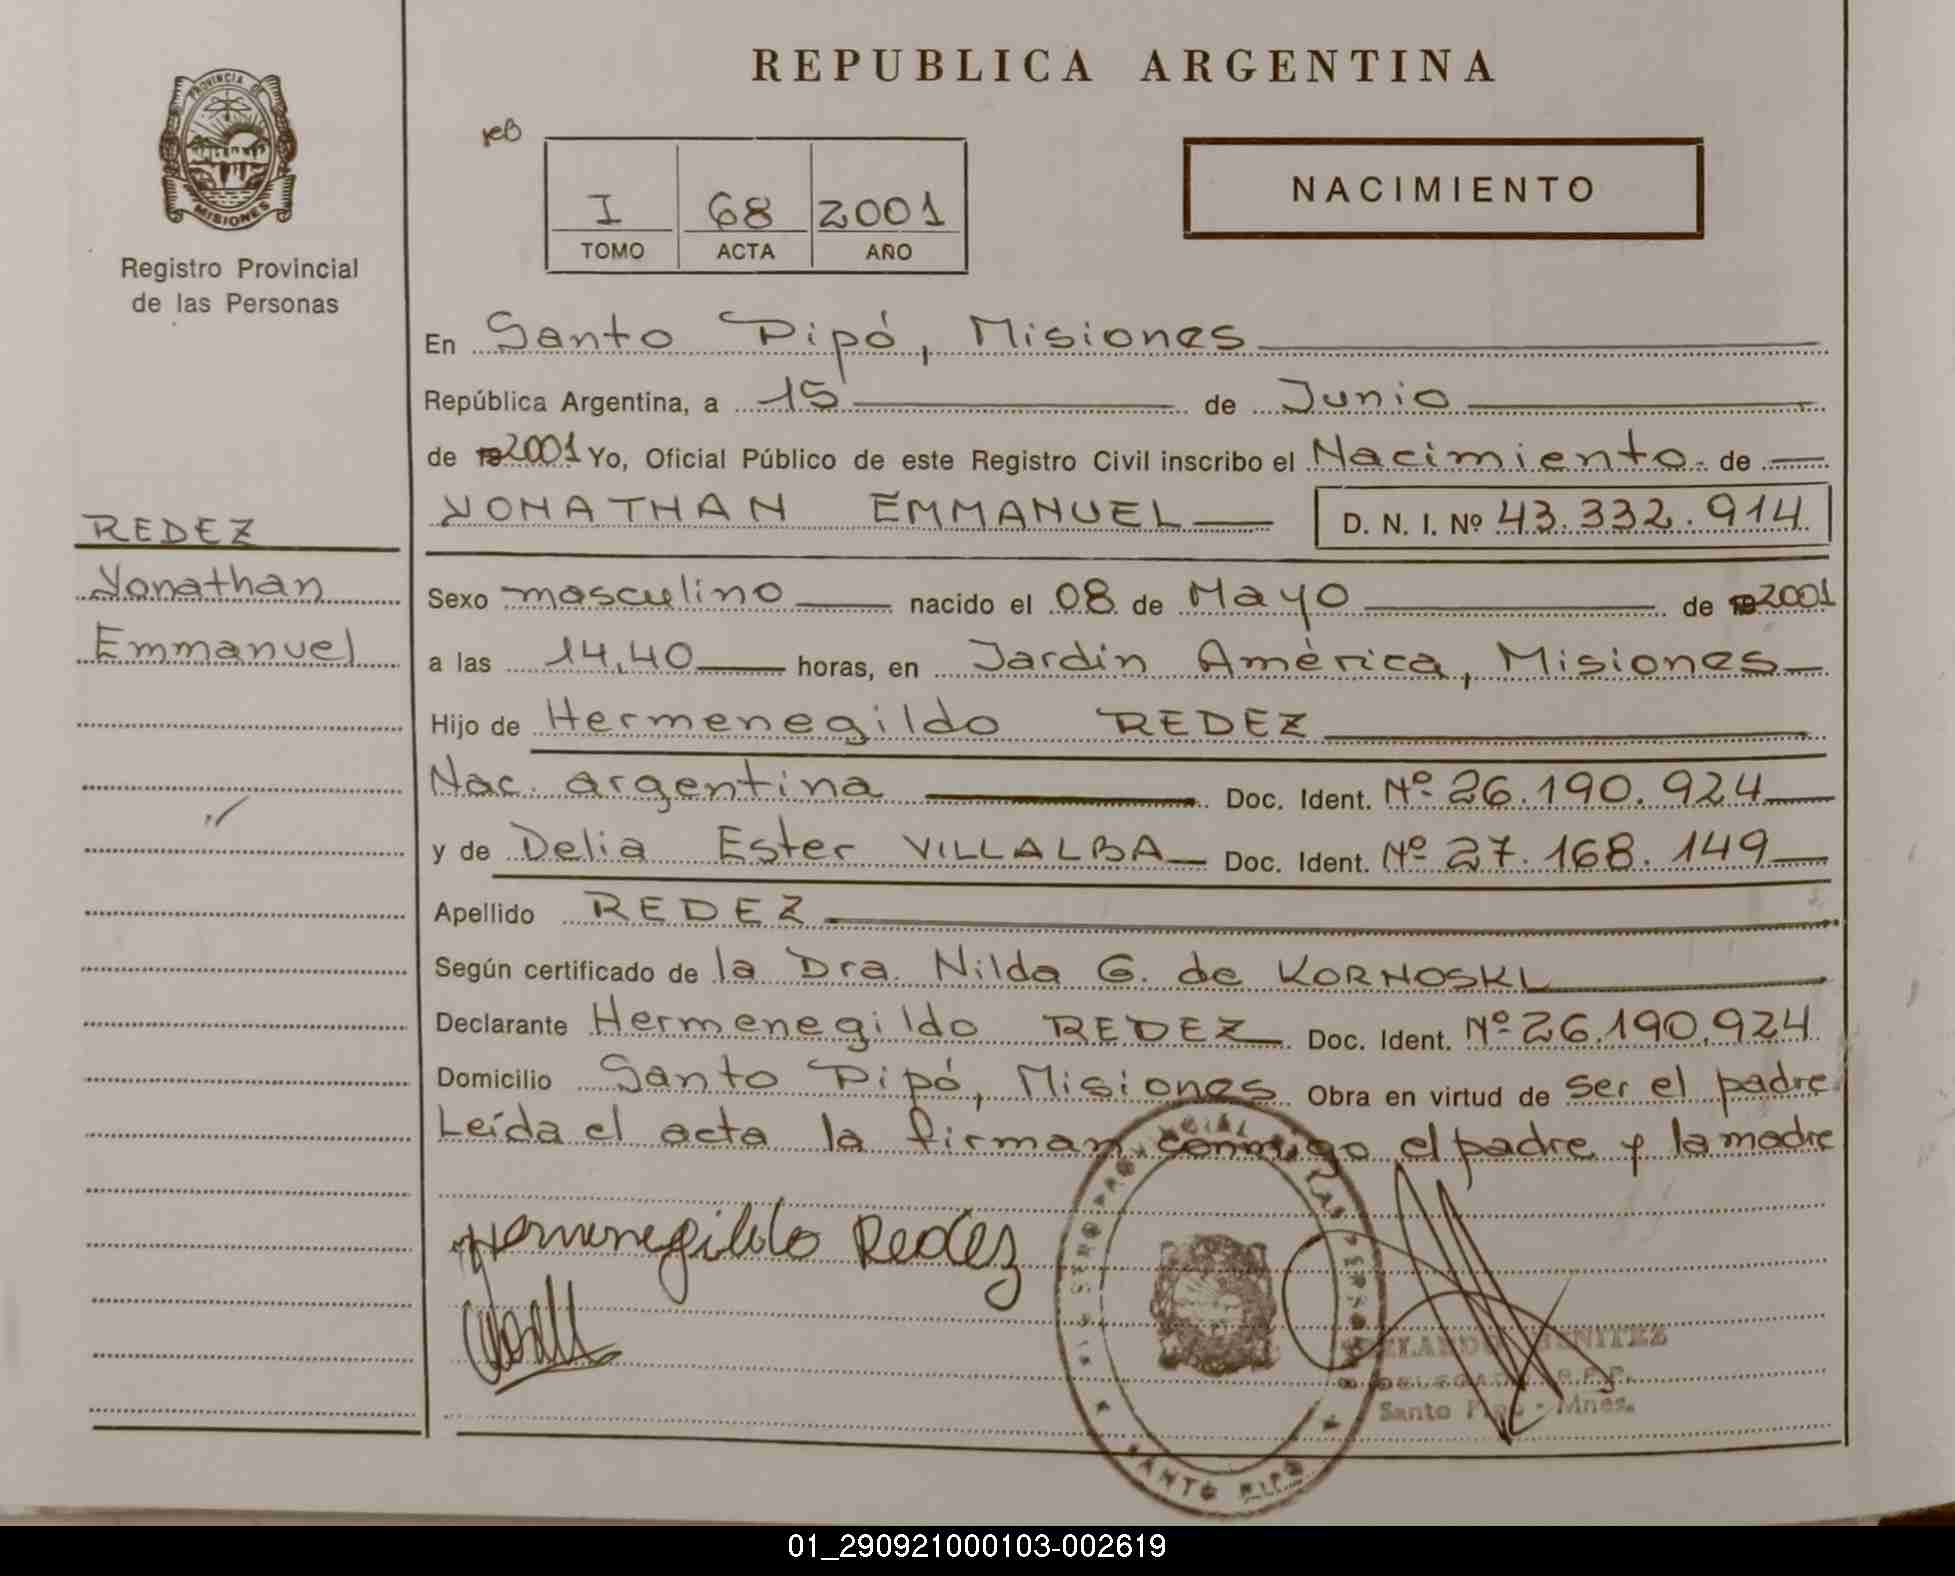 REPUBLICA ARGENTINA
PROVINCIA DE
MISIONES
Registro Provincial
de las Personas
I 68 2001
TOMO ACTA AÑO
NACIMIENTO
En Santo Pipó, Misiones
República Argentina, a 15 de Junio
de 19 2001 Yo, Oficial Público de este Registro Civil inscribo el Nacimiento. de
YONATHAN EMMANUEL D. N. I. Nº 43.332.914
REDEZ
Yonathan
Emmanuel
Sexo masculino nacido el 08 de Mayo de 19 2001
a las 14,40 horas, en Jardín América, Misiones
Hijo de Hermenegildo REDEZ
Nac. argentina Doc. Ident. Nº 26.190.924
y de Delia Ester VILLALBA Doc. Ident. Nº 27.168.149
Apellido REDEZ
Según certificado de la Dra. Nilda G. de KORNOSKI
Declarante Hermenegildo REDEZ Doc. Ident. Nº 26.190.924
Domicilio Santo Pipó, Misiones Obra en virtud de ser el padre
Leída el acta la firman conmigo el padre y la madre
Hermenegildo Redez
BENITEZ
DELEGADO R.P.P.
Santo Pipó - Mnes.
SANTO PIPÓ
01_290921000103-002619